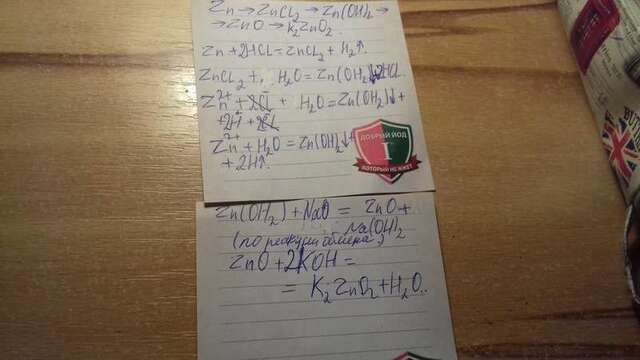 Zn → ZnCl₂ → Zn(OH)₂ →
→ ZnO → K₂ZnO₂.
Zn + 2HCl = ZnCl₂ + H₂↑.
ZnCl₂ + H₂O = Zn(OH)₂↓ 2HCl
Zn²⁺ + 2Cl⁻ + H₂O = Zn(OH₂)↓ +
+ 2H⁺ + 2Cl⁻
Zn²⁺ + H₂O = Zn(OH)₂↓ +
+ 2H↑.
ДОБРЫЙ ЙОД
I
КОТОРЫЙ НЕ ЖЖЕТ
Zn(OH₂) + NaO = ZnO +
Na(OH)₂
(по реакции обмена)
ZnO + 2KOH =
= K₂ZnO₂ + H₂O.